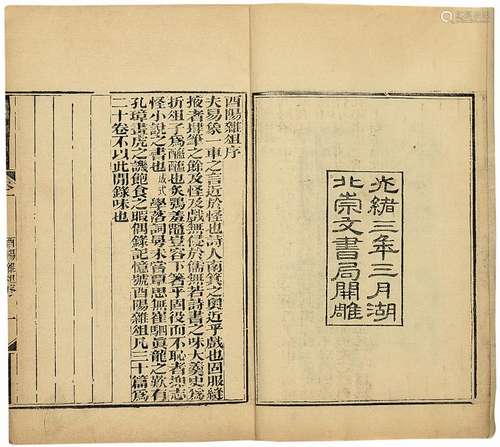 光緒三年三月湖
北崇文書局開雕
酉陽雜俎序
夫易象一車之言近於怪也詩人南箕之奧近乎戲也固服縫
掖者肆筆之餘及怪及戲無侵於儒無若詩書之味大羹史爲
折俎子爲醯醢也炙鴞羞鼈豈容下箸乎固役而不恥者抑志
怪小說之書也成式學落詞曼未嘗覃思無崔駰眞龍之歎有
孔璋畫虎之譏飽食之暇偶錄記憶號酉陽雜俎凡三十篇爲
二十卷不以此間錄味也
酉陽雜俎序